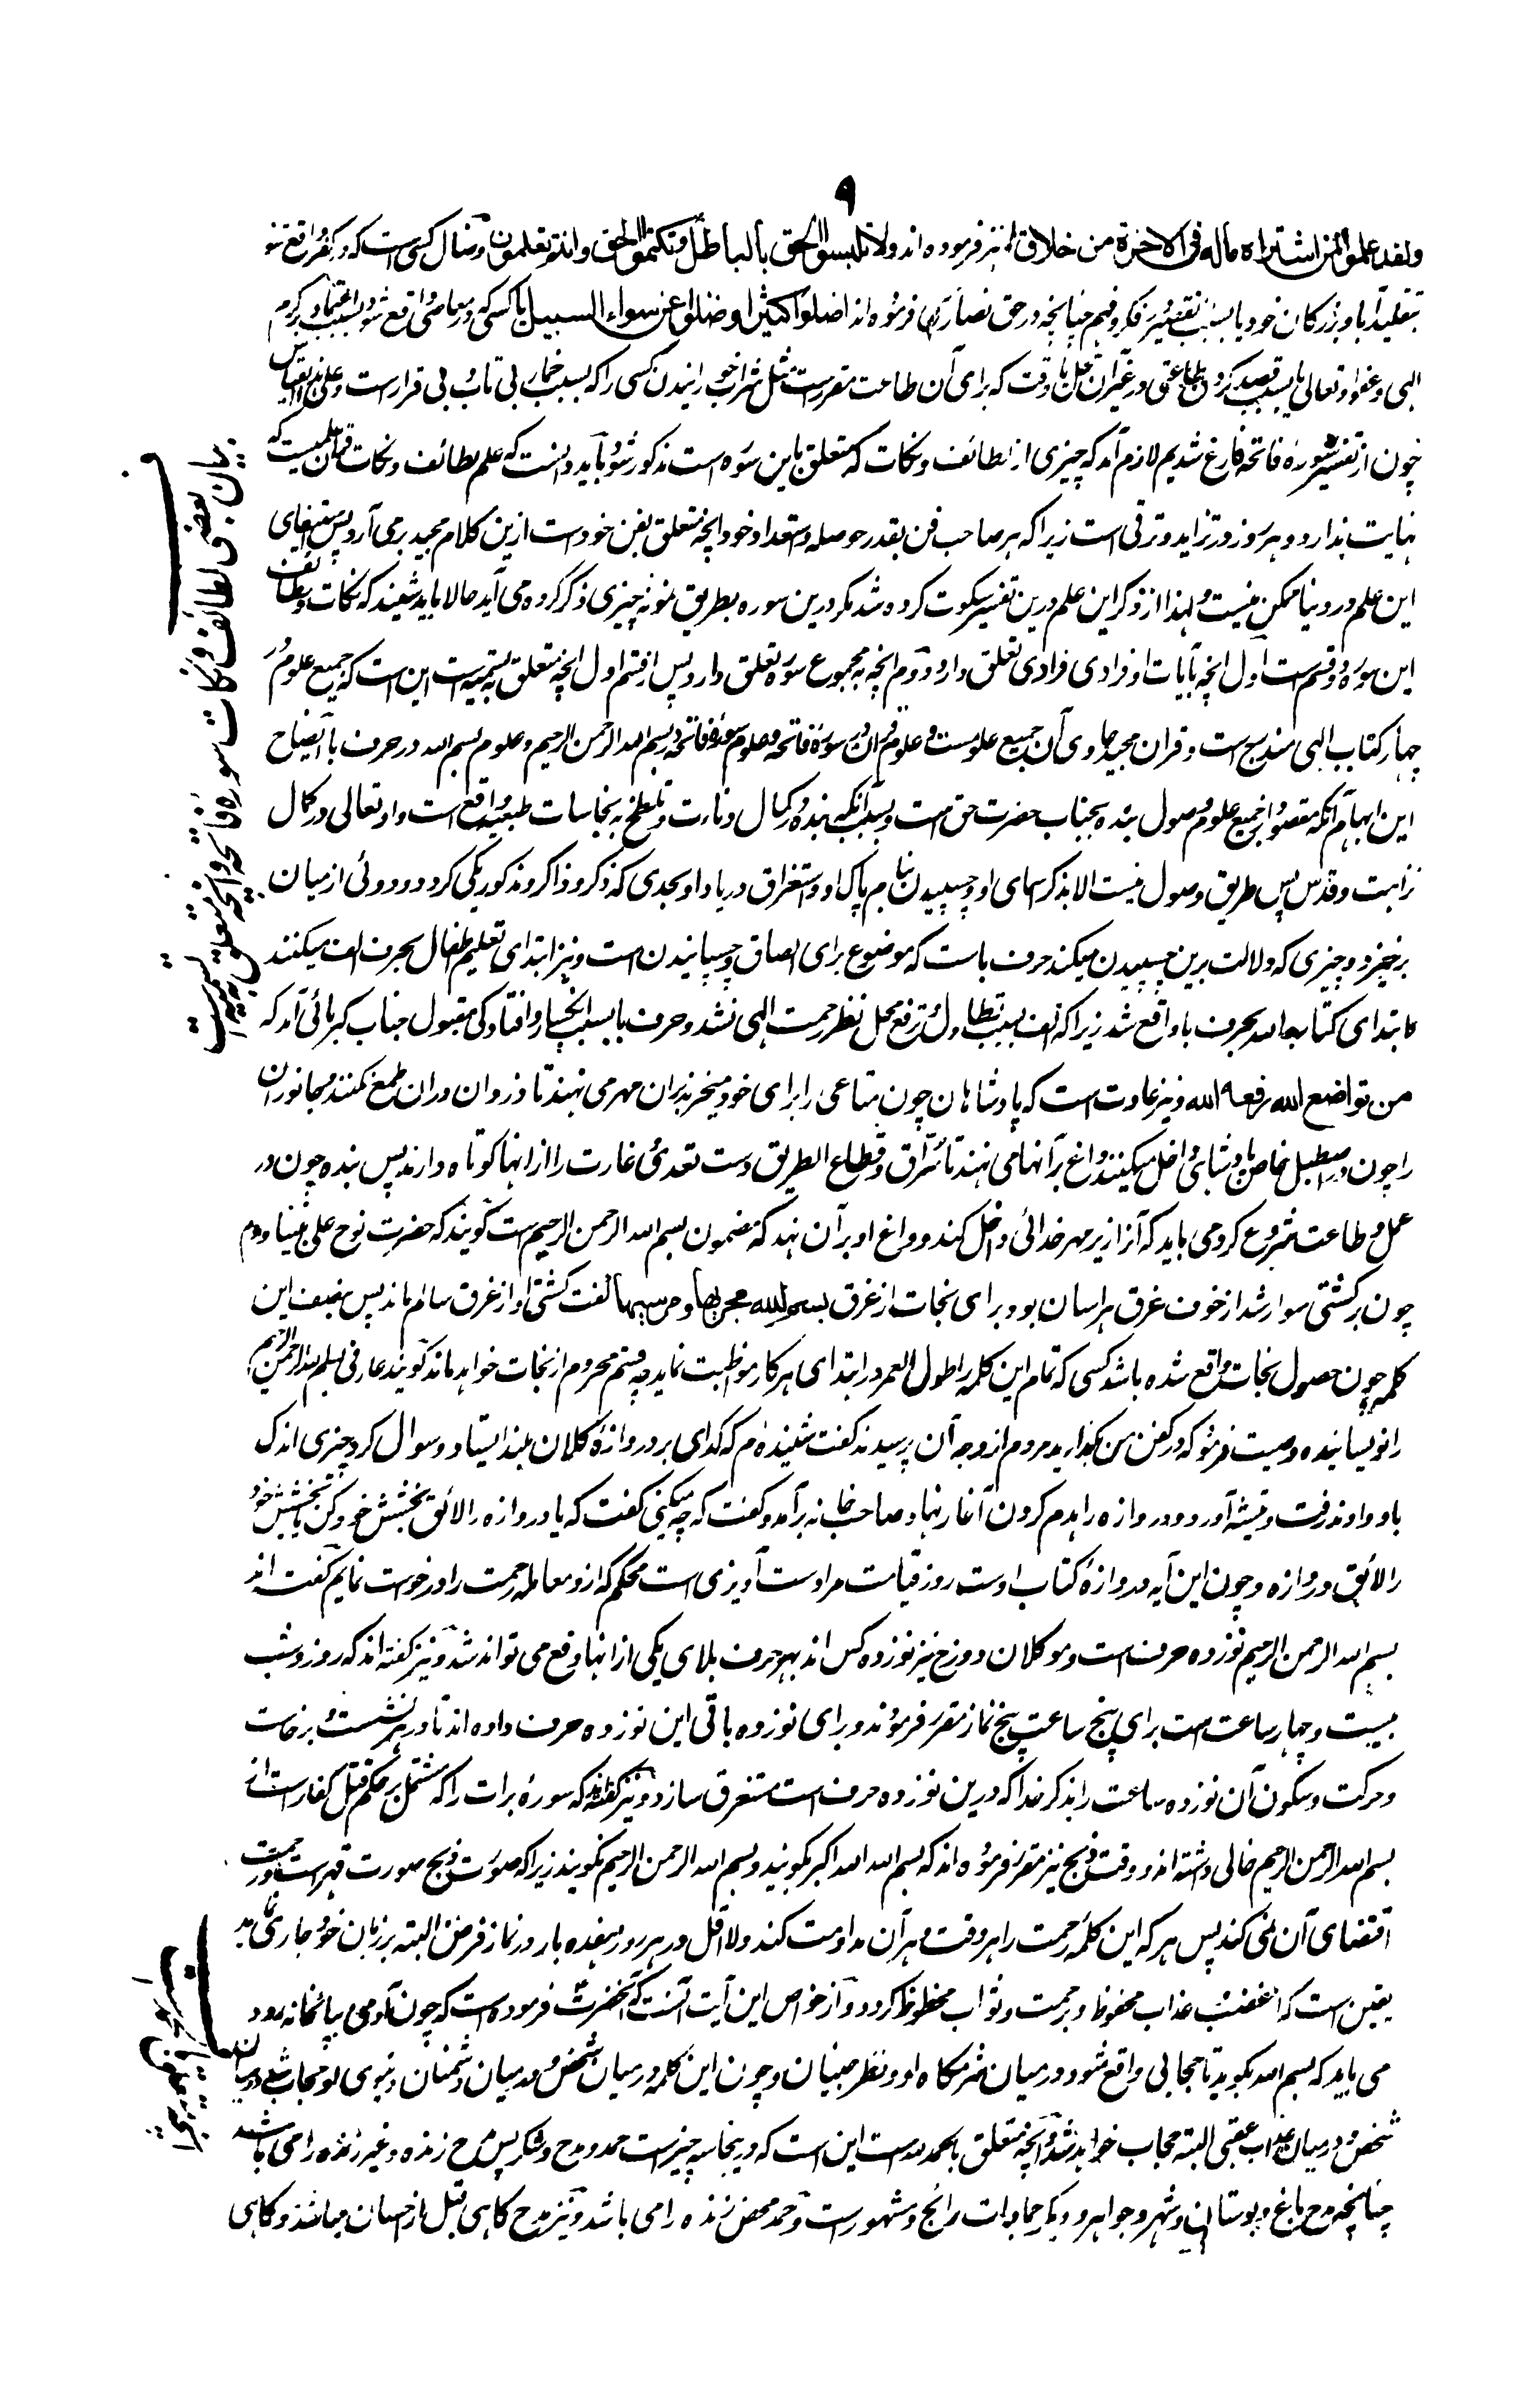 ۹
ولقد علموا لمن اشتراه ماله فی الاخرة من خلاق و نیز فرموده اند ولا تلبسوا الحق بالباطل وتکتموا الحق وانتم تعلمون و مثال کسی است که در کفر واقع شود
بتقلید آبا و بزرگان خود یا بسبب تقصیر در فکر و فهم چنانچه در حق نصاری فرموده اند اضلوا کثیرا وضلوا عن سواء السبیل یا کسی که در معاصی واقع شود بسبب اعتماد بر کرم
الهی و عفو او تعالی یا بسبب قصد کردن طاعتی در غیر آن محل یا وقت که برای آن طاعت مقررست مثل شراب خورانیدن کسی را که بسبب خمار بی تاب و بی قرار است و علی هذا القیاس
چون از تفسیر سورۀ فاتحه فارغ شدیم لازم آمد که چیزی از لطائف و نکات که متعلق باین سوره است مذکور شود باید دانست که علم لطائف و نکات قرآن علمیست که
نهایت ندارد و هر روز در تزاید و ترقی است زیرا که هر صاحب فن بقدر حوصله و استعداد خود آنچه متعلق بفن خود است ازین کلام مجید برمی آرد پس استیفای
این علم در دنیا ممکن نیست و لهذا از ذکر این علم درین تفسیر سکوت کرده شد مگر درین سوره بطریق نمونه چیزی ذکر کرده می آید حالا باید شنید که نکات و لطائف
این سوره دو قسم است اول آنچه بآیات او فرادی فرادی تعلق دارد و دوم آنچه به مجموع سوره تعلق دارد پس از قسم اول آنچه متعلق بتسمیه است این است که جمیع علوم در
چهار کتاب الهی مندرج است و قران مجید حاوی آن جمیع علومست و علوم قران در سورۀ فاتحه و علوم سورۀ فاتحه در بسم الله الرحمن الرحیم و علوم بسم الله در حرف با ایضاح
این ابهام آنکه مقصود از جمیع علوم وصول بنده بجناب حضرت حق است و بسبب آنکه بنده در کمال دناءت و تلطخ به نجاسات طبعیه واقع است و او تعالی در کمال
نزاهت و قدس پس طریق وصول نیست الا بذکر اسمای او و چسپیدن بنام پاک او و استغراق در یاد او بحدی که ذکر و ذاکر و مذکور یکی گردد و دوئی از میان
برخیزد و چیزی که دلالت برین چسپیدن میکند حرف باست که موضوع برای الصاق و چسپانیدن است و نیز ابتدای تعلیم اطفال بحرف الف میکنند
و ابتدای کتاب الله بحرف با واقع شد زیرا که الف بسبب تطاول و ترفع محل نظر رحمت الهی نشد و حرف با بسبب انکسار و افتادگی مقبول جناب کبریائی آمد که
من تواضع لله رفعه الله و نیز عادت است که پادشاهان چون متاعی را برای خود میخرند بران مهر می نهند تا دزدان دران طمع نکنند و جانوران
را چون در اصطبل خاص پادشاهی داخل میکنند داغ بر آنها می نهند تا سراق و قطاع الطریق دست تعدی و غارت را از انها کوتاه دارند پس بنده چون در
عمل و طاعت شروع کرد می باید که آنرا زیر مهر خدائی داخل کند و داغ او بر آن نهد که مضمون بسم الله الرحمن الرحیم ست گویند که حضرت نوح علی نبینا و دم
چون بر کشتی سوار شد از خوف غرق هراسان بود برای نجات از غرق بسم الله مجریها ومرسیها گفت کشتی او از غرق سالم ماند پس بنصف این
کلمه چون حصول نجات واقع شده باشد کسی که تمام این کلمه را طول العمر در ابتدای هر کار مواظبت نماید چه قسم محروم از نجات خواهد ماند گویند عارفی بسم الله الرحمن الرحیم
را نویسانیده وصیت فرمود که در کفن من بگذارید مردم از وجه آن پرسیدند گفت شنیده ام که گدای بر دروازۀ کلان بلند ایستاد و سوال کرد چیزی اندک
باو دادند رفت و تیشه آورد و دروازه را هدم کردن آغاز نهاد صاحب خانه برآمد و گفت که چه میکنی گفت که یا دروازه را لائق بخشش خود کن یا بخشش خود
را لائق دروازه و چون این آیه دروازۀ کتاب اوست روز قیامت مرا دست آویزی است محکم که از و معامله رحمت را درخواست نمایم گفته اند
بسم الله الرحمن الرحیم نوزده حرف است و موکلان دوزخ نیز نوزده کس اند بهر حرف بلای یکی از انها دفع می تواند شد و نیز گفته اند که روز و شب
بیست و چهار ساعت ست برای پنج ساعت پنج نماز مقرر فرمودند و برای نوزده باقی این نوزده حرف داده اند تا در هر نشست و برخاست
و حرکت و سکون آن نوزده ساعت را بذکر خدا که درین نوزده حرف است مستغرق سازد و نیز گفته اند که سورۀ برات را که مشتمل بر حکم قتل کفار است از
بسم الله الرحمن الرحیم خالی داشته اند و وقت ذبح نیز مقرر فرموده اند که بسم الله الله اکبر بگویند و بسم الله الرحمن الرحیم نگویند زیرا که صورت ذبح صورت قهر است و رحمت
اقتضای آن نمی کند پس هر که این کلمۀ رحمت را هر وقت و هر آن مداومت کند و لااقل در هر روز هفده بار در نماز فرض البته بر زبان خود جاری نماید
یقین است که از غضب و عذاب محفوظ و برحمت و ثواب محظوظ گردد و از خواص این آیت آنست که آنحضرت فرموده است که چون آدمی بپائخانه رود
می باید که بسم الله بگوید تا حجابی واقع شود در میان شرمگاه او و نظر جنیان و چون این کلمه در میان شخص و در میان دشمنان دنیوی او حجاب شد در میان
شخص و در میان عذاب عقبی البته حجاب خواهد شد و آنچه متعلق بالحمد لله است این است که در ینجا سه چیزست حمد و مدح و شکر پس مدح زنده و غیر زنده را می باشد
چنانچه مدح باغ و بوستان و شهر و جواهر و دیگر جمادات رائج و مشهورست و حمد محض زنده را می باشد و نیز مدح گاهی قبل از احسان میباشد و گاهی
بیان بعضی لطائف و نکات سورۀ فاتحه و آنچه متعلق بتسمیه است